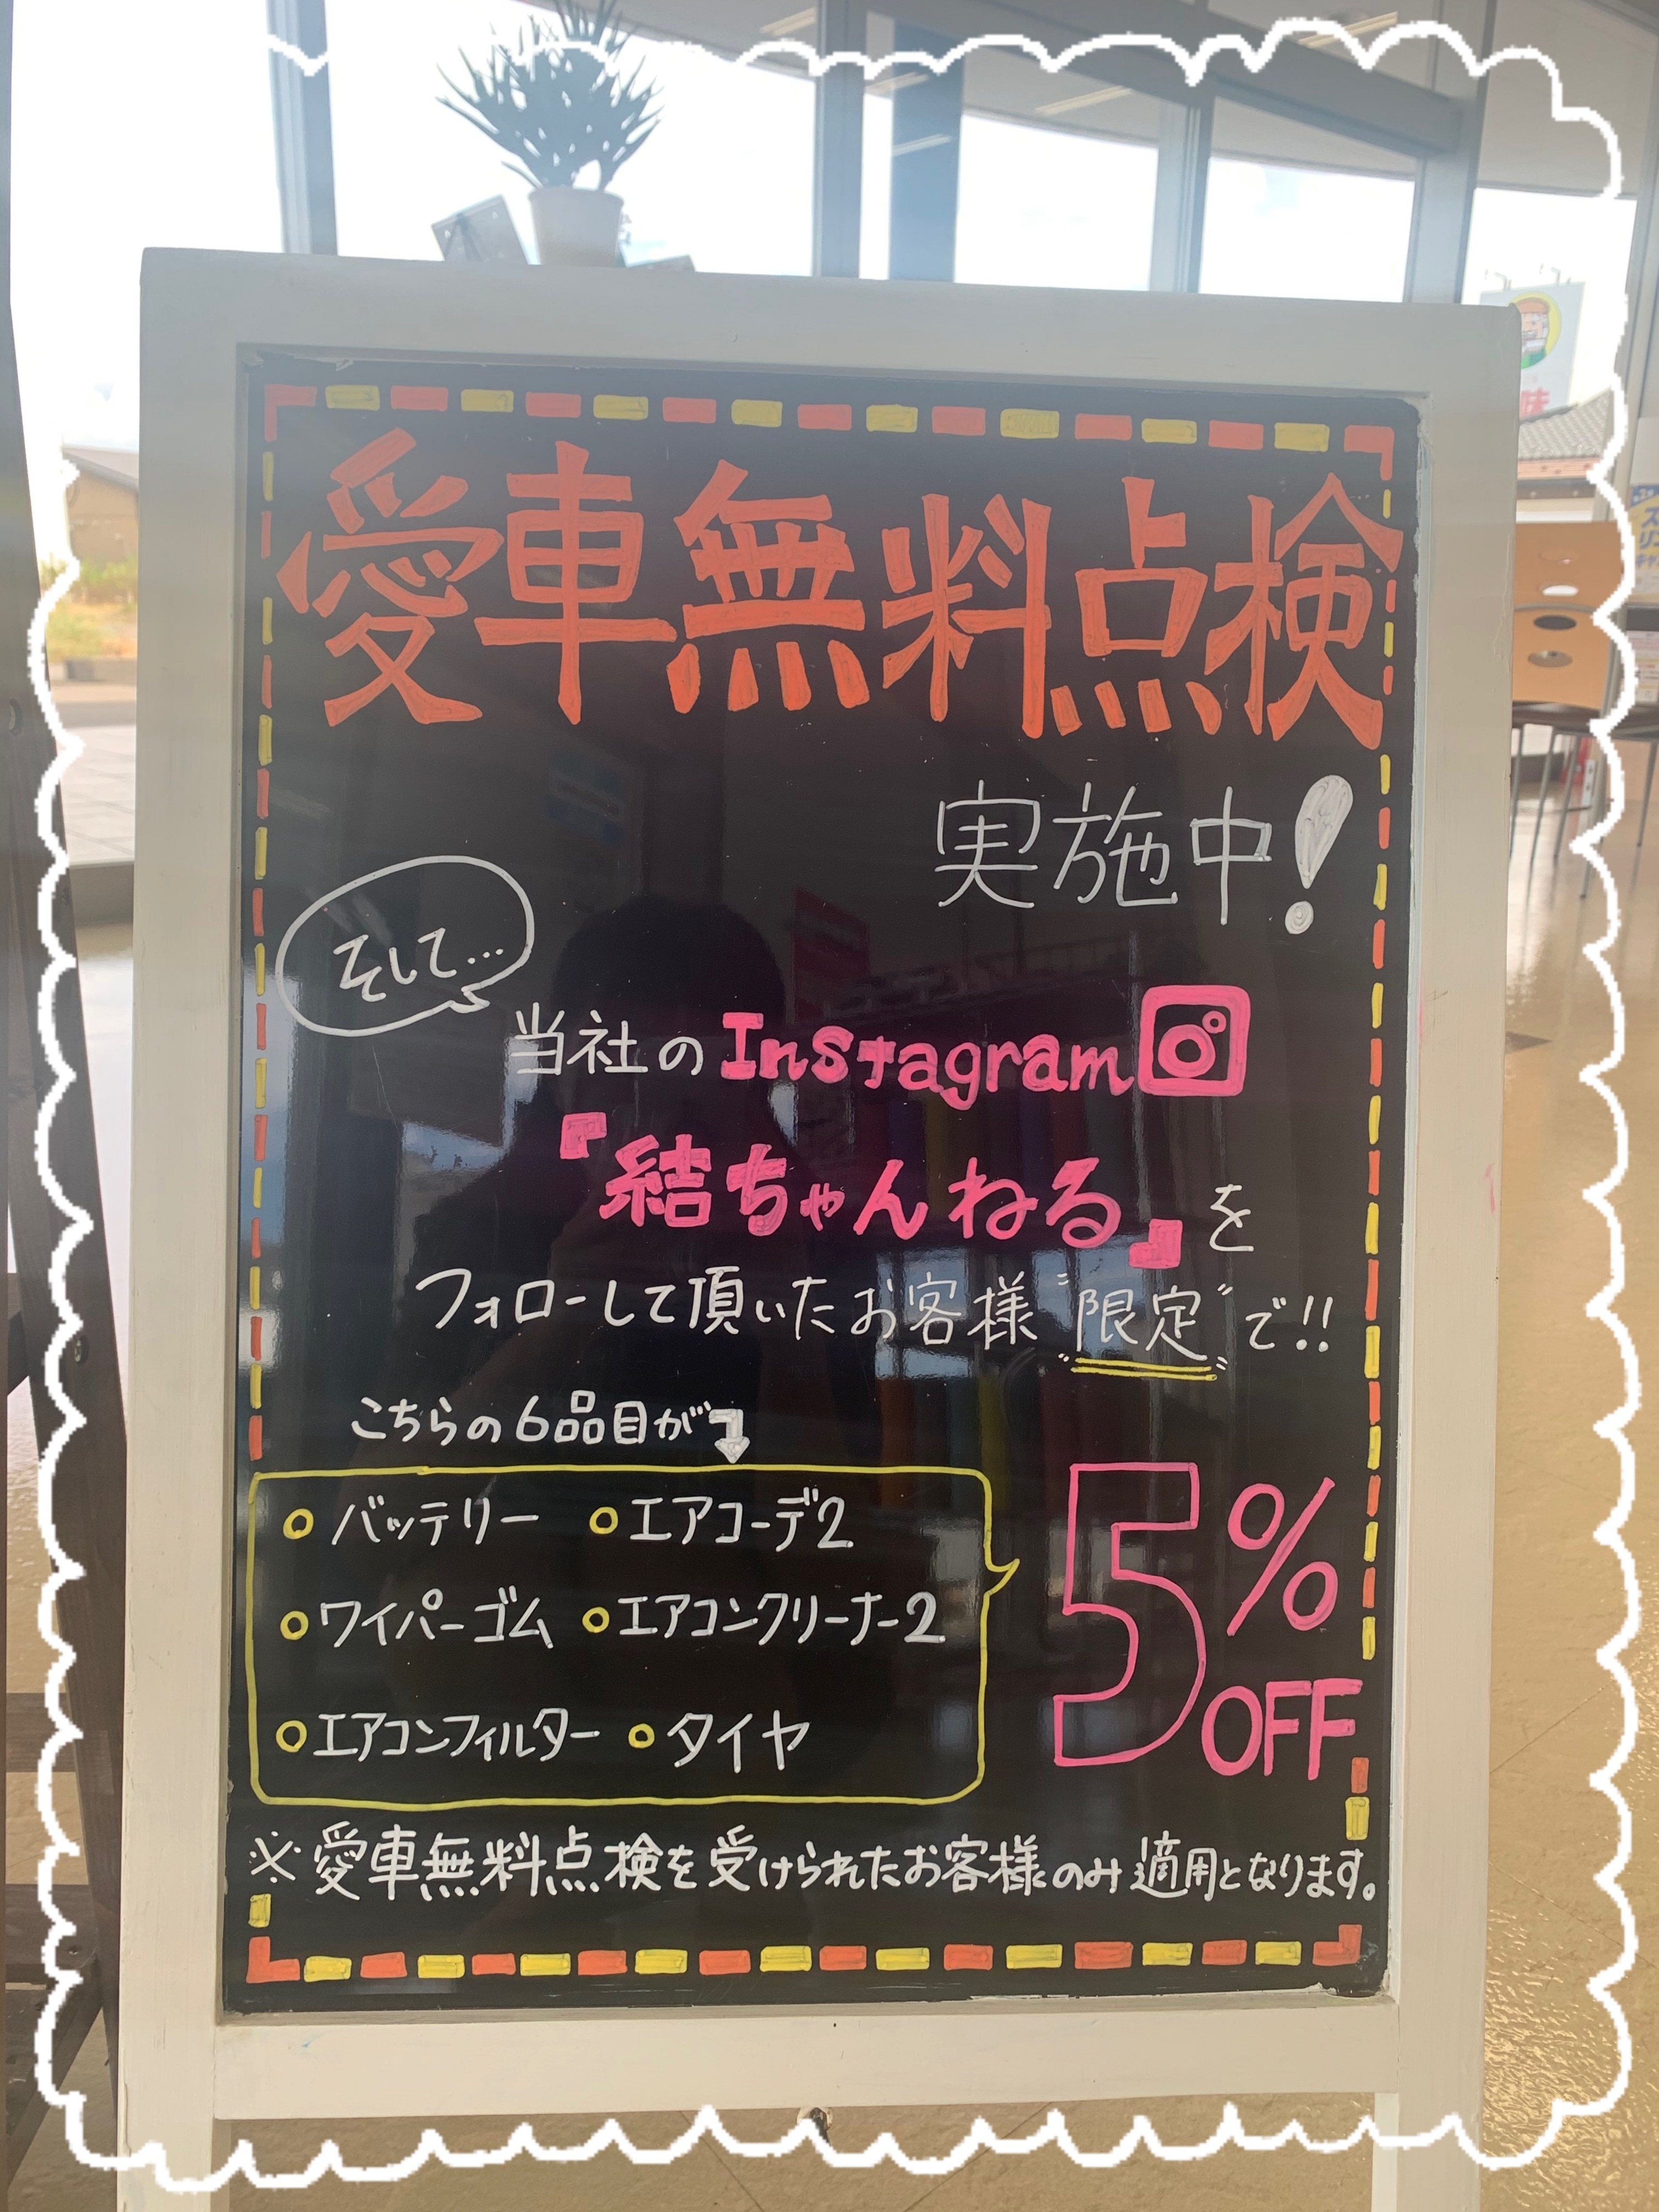 愛車無料点検
実施中!
そして…
当社のInstagram
『結ちゃんねる』を
フォローして頂いたお客様"限定"で!!
こちらの6品目が
バッテリー エアコーデ2
ワイパーゴム エアコンクリーナー2
エアコンフィルター タイヤ
5%
OFF
※愛車無料点検を受けられたお客様のみ適用となります。
味